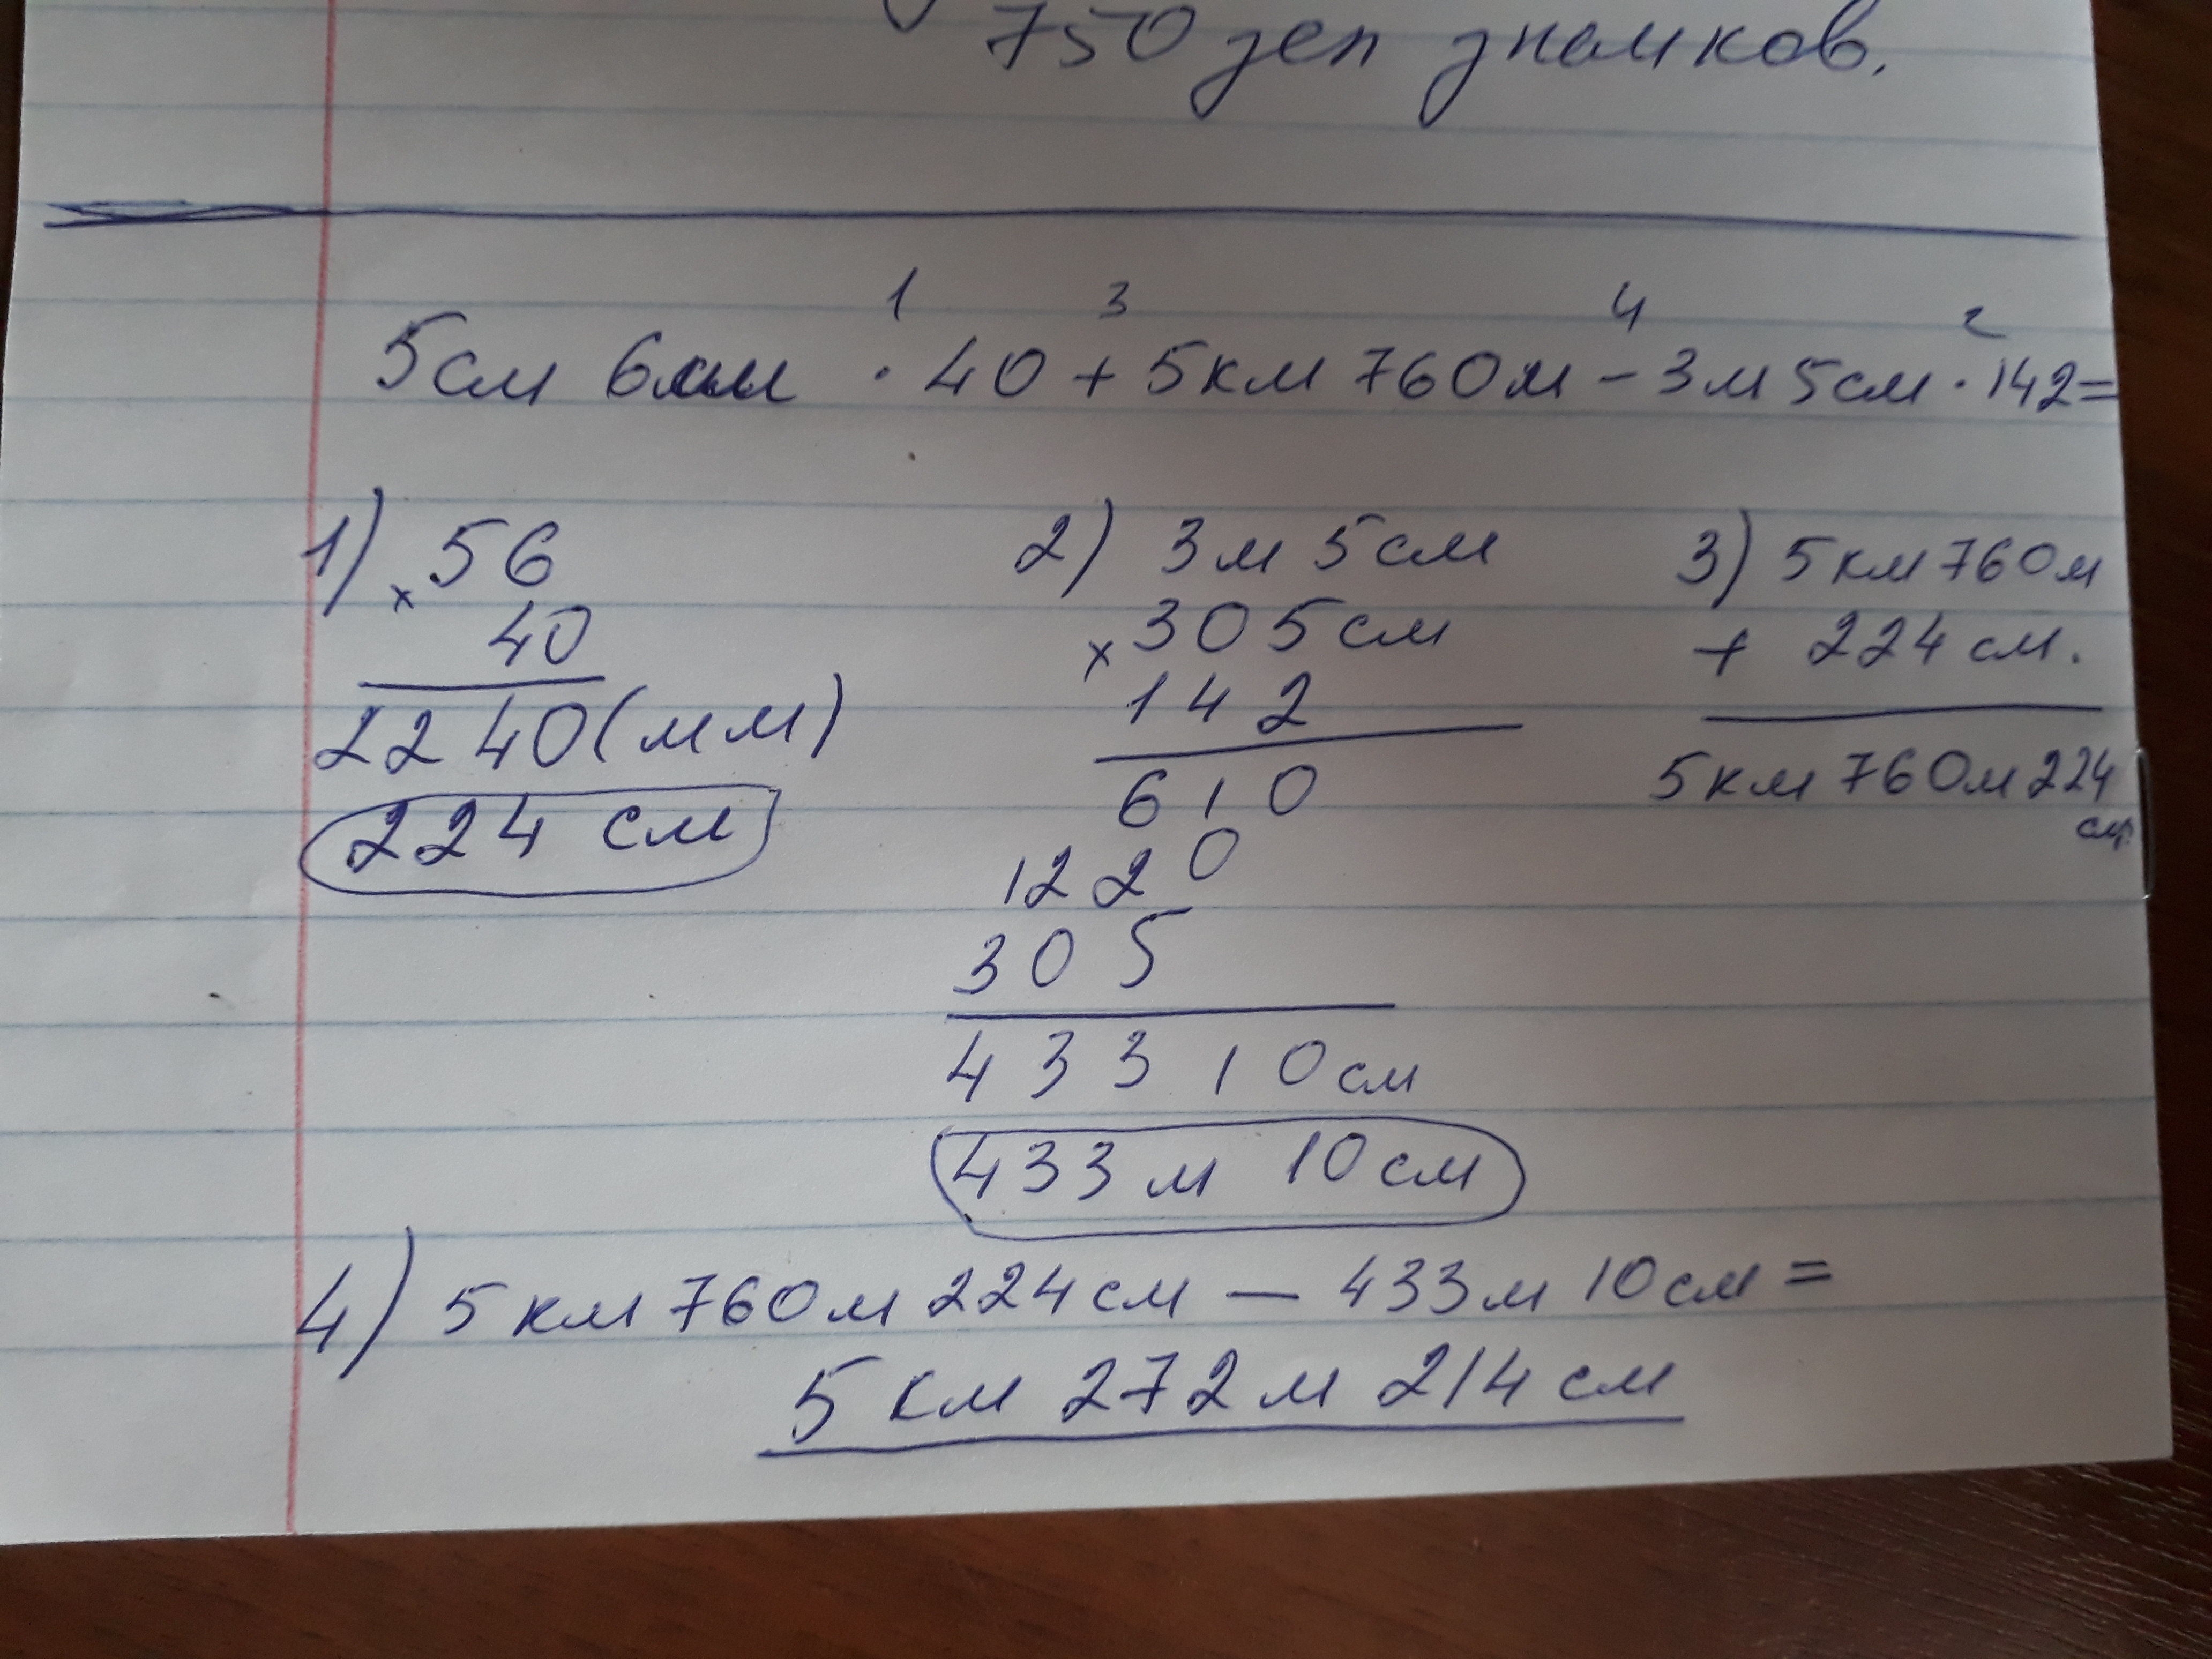 750 зел значков.
1 3 4 2
5см 6мм · 40 + 5км 760м - 3м 5см · 142=
1) 56
× 40
2240 (мм)
224 см
2) 3м 5см
× 305см
142
610
1220
305
43310см
433м 10см
3) 5км 760м
+ 224 см.
5км 760м 224
см.
4) 5км 760м 224см — 433м 10см =
5км 272м 214см